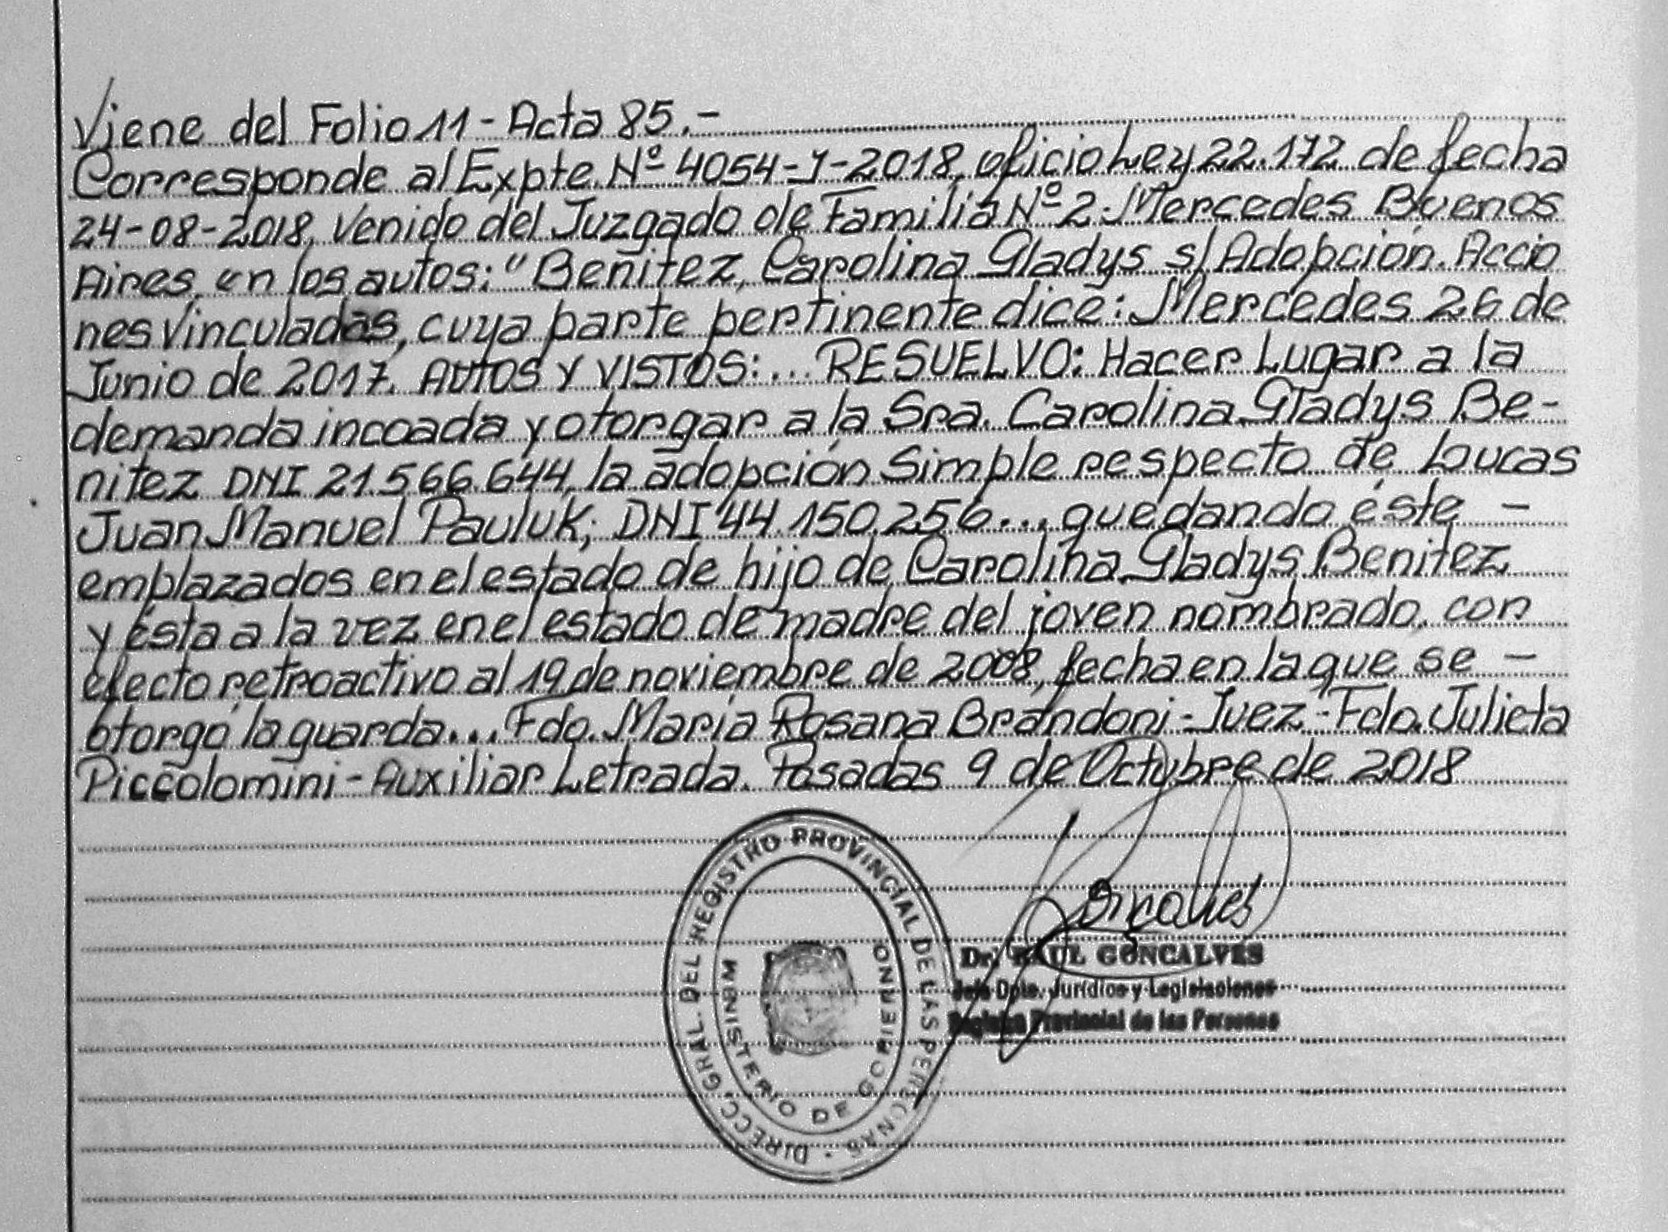 Viene del Folio 11 - Acta 85.-
Corresponde al Expte. Nº 4054-J-2018, oficio Ley 22.172 de fecha
24-08-2018, venido del Juzgado de Familia Nº 2-Mercedes Buenos
Aires, en los autos: "Benitez, Carolina Gladys s/ Adopción. Accio
nes Vinculadas, cuya parte pertinente dice: Mercedes 26 de
Junio de 2017. AUTOS Y VISTOS:... RESUELVO: Hacer Lugar a la
demanda incoada y otorgar a la Sra. Carolina Gladys Be-
nitez DNI 21.566.644, la adopción Simple respecto de Loucas
Juan Manuel Pauluk; DNI 44.150.256... quedando éste -
emplazados en el estado de hijo de Carolina Gladys Benitez
y ésta a la vez en el estado de madre del joven nombrado, con
efecto retroactivo al 19 de noviembre de 2008, fecha en la que se -
otorgó la guarda... Fdo. María Rosana Brandoni - Juez - Fdo. Julieta
Piccolomini - Auxiliar Letrada. Posadas 9 de Octubre de 2018
DIRECC. GRAL. DEL REGISTRO PROVINCIAL DE LAS PERSONAS
MINISTERIO DE GOBIERNO
Goncalves
Dr. RAUL GONCALVES
Jefe Dpto. Jurídico y Legislaciones
Registro Provincial de las Personas